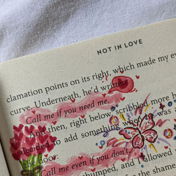 NOT IN LOVE
clamation points on its right, which made my
curve. Underneath, he'd written
Call me if you need me.
then, right below, scribbled more
to add something
Call me even if you don't
bumped, and I followed
of the shame